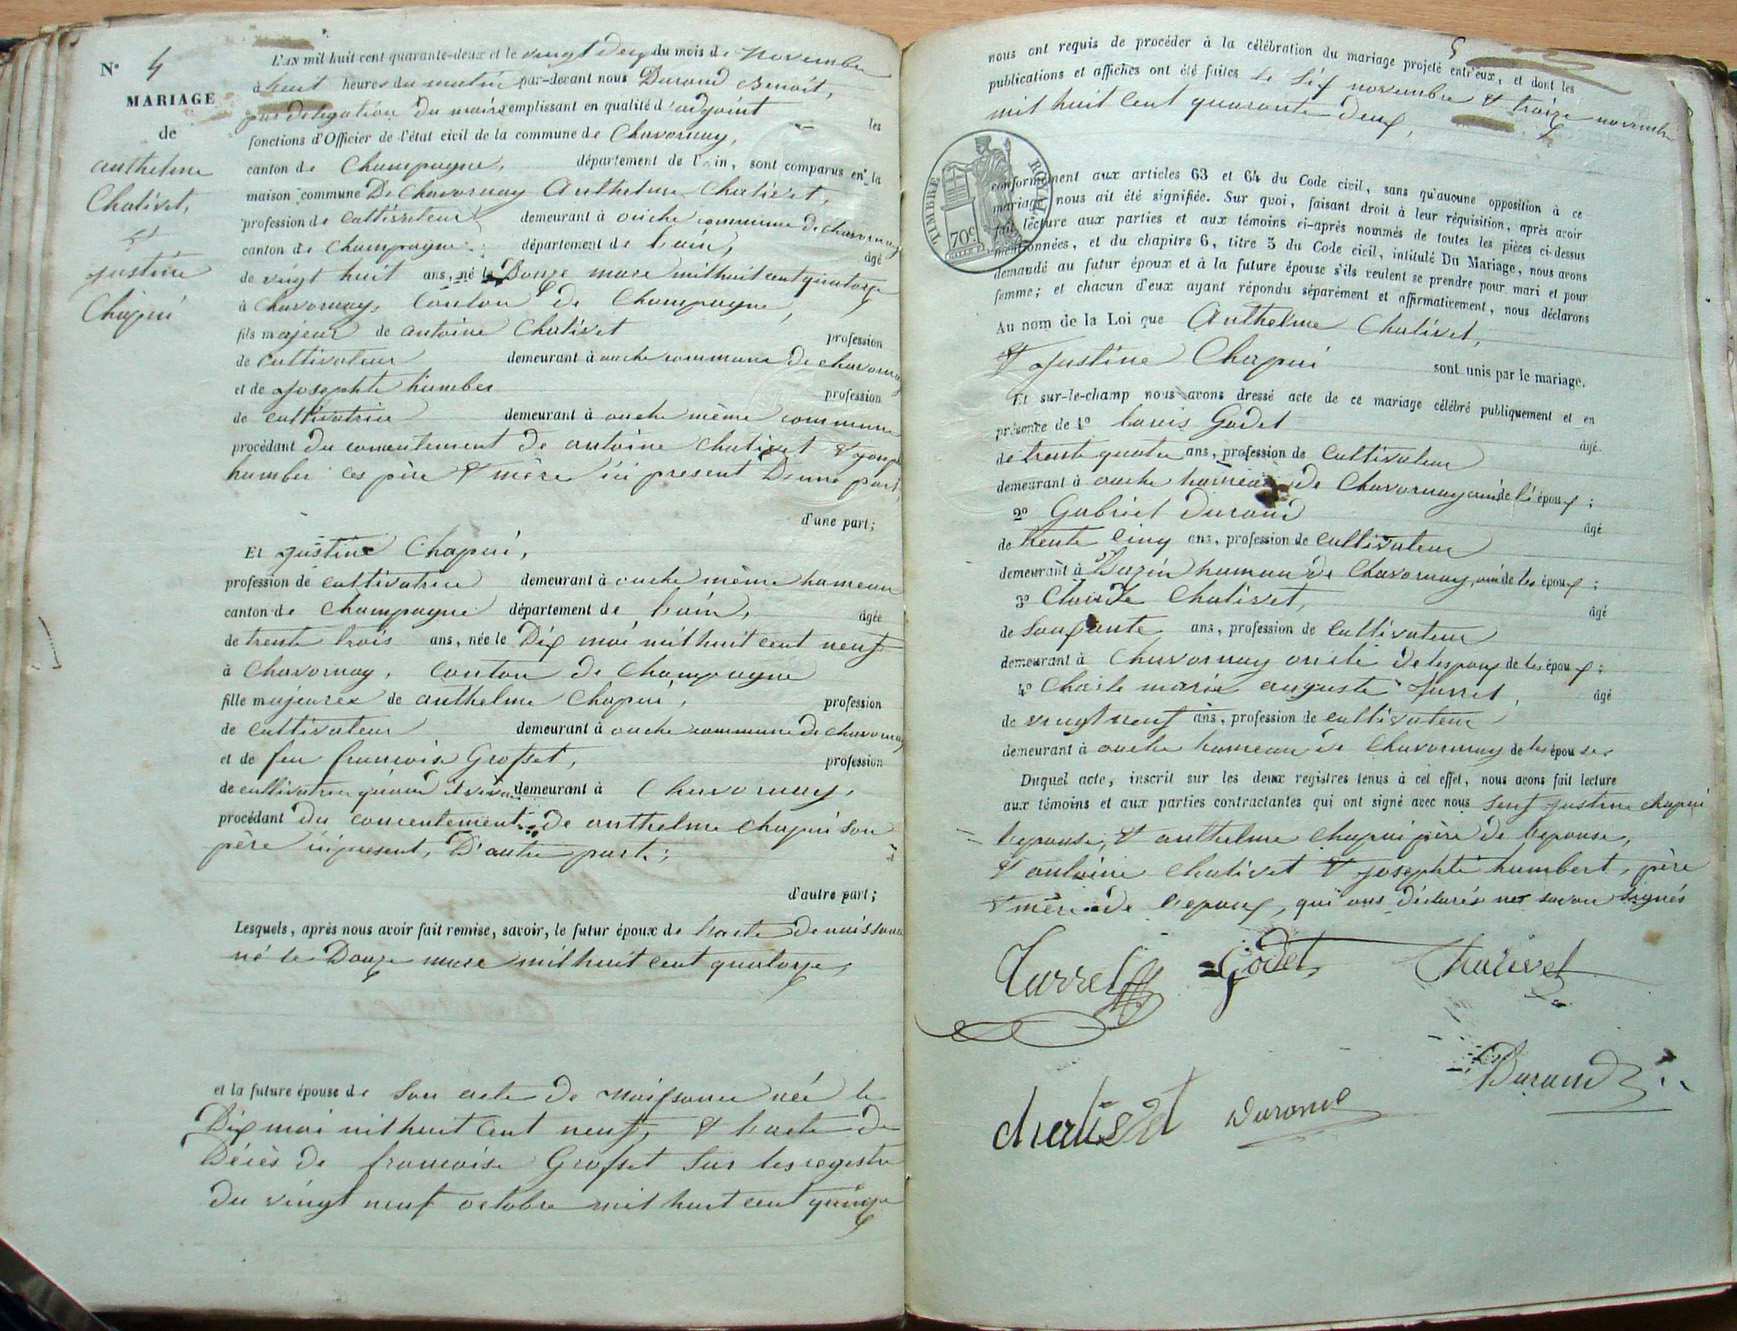 N° 4
MARIAGE
de
anthelme
Chalivet,
et
justine
Chapui
L'AN mil huit cent quarante-deux et le vingt deux du mois de Novembre
à huit heures du matin par-devant nous Durand Benoit,
par délégation du maire remplissant en qualité d'adjoint les
fonctions d'Officier de l'état civil de la commune de Chavornay,
canton de Champagne, département de l'Ain, sont comparus en la
maison commune De Chavornay Anthelme Chalivet,
profession de cultivateur demeurant à ouche commune de chavornay
canton de Champagne, département de l'ain, âgé
de vingt huit ans, né le Douze mars mil huit cent quatorze
à Chavornay, Canton de Champagne,
fils majeur de antoine Chalivet profession
de cultivateur demeurant à ouche commune de chavornay
et de Josephte humber profession
de cultivatrice demeurant à ouche même commune
procédant du consentement de antoine chalivet &
humber ces père & mère ici present D'une part,
d'une part;
Et justine Chapui,
profession de cultivatrice demeurant à ouche même hameau
canton de Champagne département de l'ain, âgée
de trente trois ans, née le Dix mai mil huit cent neuf
à Chavornay, Canton de Champagne
fille majeure de anthelme Chapui, profession
de cultivateur demeurant à ouche commune de chavornay
et de feu francoise Grosset, profession
de cultivatrice quand demeurant à Chavornay,
procédant du concentement de anthelme chapui son
père ici present, D'autre part;
d'autre part;
Lesquels, après nous avoir fait remise, savoir, le futur époux de l'acte De naissance
né le Douze mars mil huit cent quatorze,
et la future épouse de Son acte de Naissance née le
Dix mai mil huit cent neuf, & l'acte de
Décès de francoise Grosset Sur les registre
du vingt neuf octobre mil huit cent quinze
5
nous ont requis de procéder à la célébration du mariage projeté entr'eux, et dont les
publications et affiches ont été faites le Six novembre & treize novembre
mil huit cent quarante Deux,
TIMBRE ROYAL
70c
conformément aux articles 63 et 64 du Code civil, sans qu'aucune opposition à ce
mariage nous ait été signifiée. Sur quoi, faisant droit à leur réquisition, après avoir
fait lecture aux parties et aux témoins ci-après nommés de toutes les pièces ci-dessus
mentionnées, et du chapitre 6, titre 5 du Code civil, intitulé Du Mariage, nous avons
demandé au futur époux et à la future épouse s'ils veulent se prendre pour mari et pour
femme; et chacun d'eux ayant répondu séparément et affirmativement, nous déclarons
Au nom de la Loi que Anthelme Chalivet,
& Justine Chapui sont unis par le mariage.
Et sur-le-champ nous avons dressé acte de ce mariage célébré publiquement et en
présence de 1° Louis Godet âgé
de trente quatre ans, profession de Cultivateur
demeurant à ouche hameau de Chavornay ami de l'époux;
2° Gabriel Durand âgé
de trente Cinq ans, profession de cultivateur
demeurant à hameau de Chavornay, ami de les époux;
3° Claude Chalivet, âgé
de Soixante ans, profession de Cultivateur
demeurant à Chavornay oncle de lespoux de les époux;
4° Charle marie auguste Turrel, âgé
de vingt neuf ans, profession de cultivateur
demeurant à ouche hameau de Chavornay de les époux
Duquel acte, inscrit sur les deux registres tenus à cet effet, nous avons fait lecture
aux témoins et aux parties contractantes qui ont signé avec nous Sauf justine chapui
l'epouse, & anthelme chapui père de lepouse,
& antoine Chalivet & josephte humbert, père
& mère de l'epoux, qui ons déclarés savoir signés
Turrel Godet Chalivet
Durand
chalivet Durand